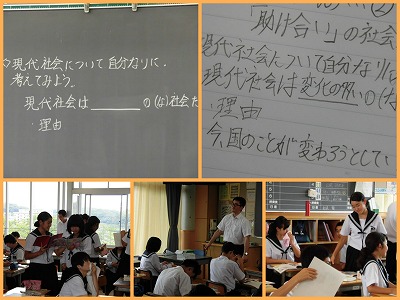 ◇現代社会について自分なりに
考えてみよう。
現代社会は______の(な)社会だ
・理由
「助け合い」の社会
現代社会について自分なりに
現代社会は変化の多い の(な
・理由
今、国のことが変わろうとしてい